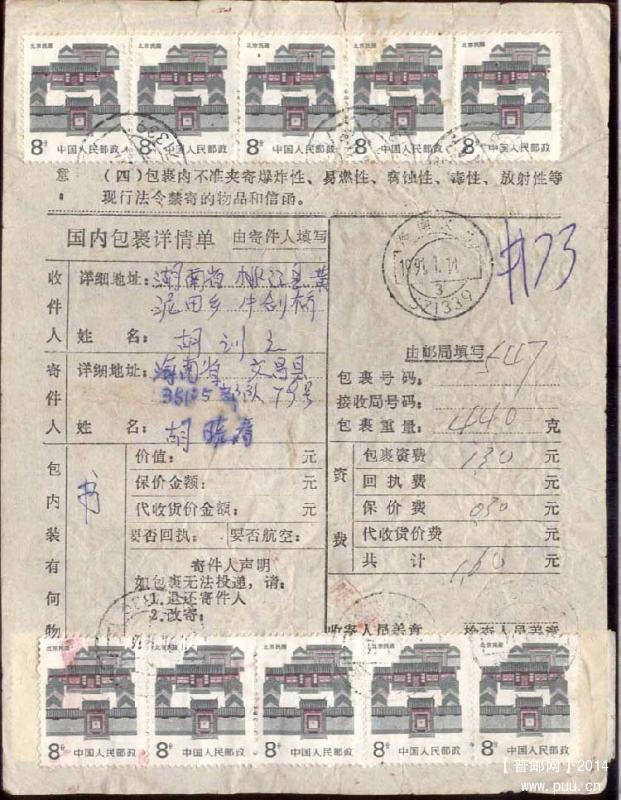 北京民居 北京民居 北京民居 北京民居 北京民居
8分 中国人民邮政 8分 中国人民邮政 8分 中国人民邮政 8分 中国人民邮政 8分 中国人民邮政
意 (四)包裹内不准夹寄爆炸性、易燃性、腐蚀性、毒性、放射性等
现行法令禁寄的物品和信函。
国内包裹详情单 由寄件人填写
收件人 详细地址：湖南省桃江县黄
泥田乡牛剑桥
姓名：胡训之
寄件人 详细地址：海南省文昌县
部队79号
姓名：胡晓
1991.1.11
3
571339
#73
由邮局填写
包裹号码：547
接收局号码：
包裹重量：440克
包内装有何物
书
价值：元
保价金额：元
代收货价金额：元
要否回执： 要否航空：
寄件人声明
如包裹无法投递，请：
1.退还寄件人
2.改寄：
资费
包裹资费 130 元
回执费 元
保价费 030 元
代收货价费 元
共计 160 元
收寄人员盖章 检查人员盖章
北京民居 北京民居 北京民居 北京民居 北京民居
8分 中国人民邮政 8分 中国人民邮政 8分 中国人民邮政 8分 中国人民邮政 8分 中国人民邮政
【普邮网】2014
www.puu.cn